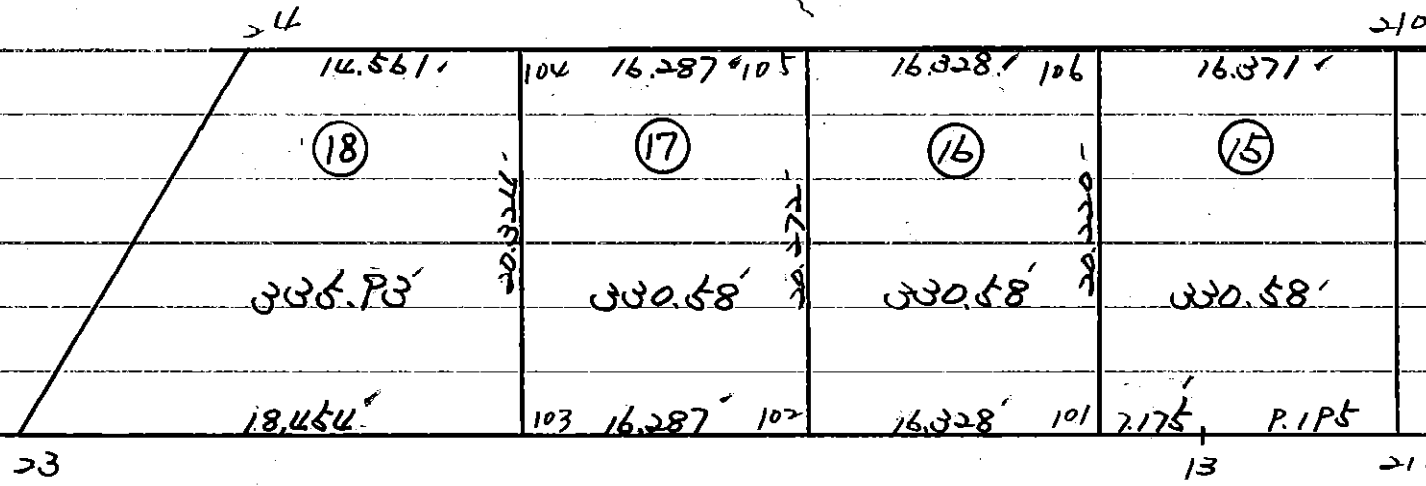 24 210
14.561 104 16.287 105 16.328 106 16.371
18 17 16 15
20.324 20.272 20.220
335.93 330.58 330.58 330.58
18.454 103 16.287 102 16.328 101 7.175 9.195
23 13 21